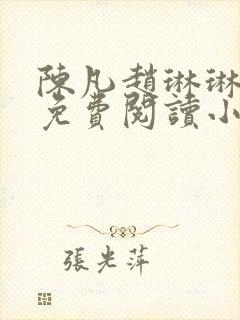 陳凡趙琳琳
免費閱讀小
張光萍